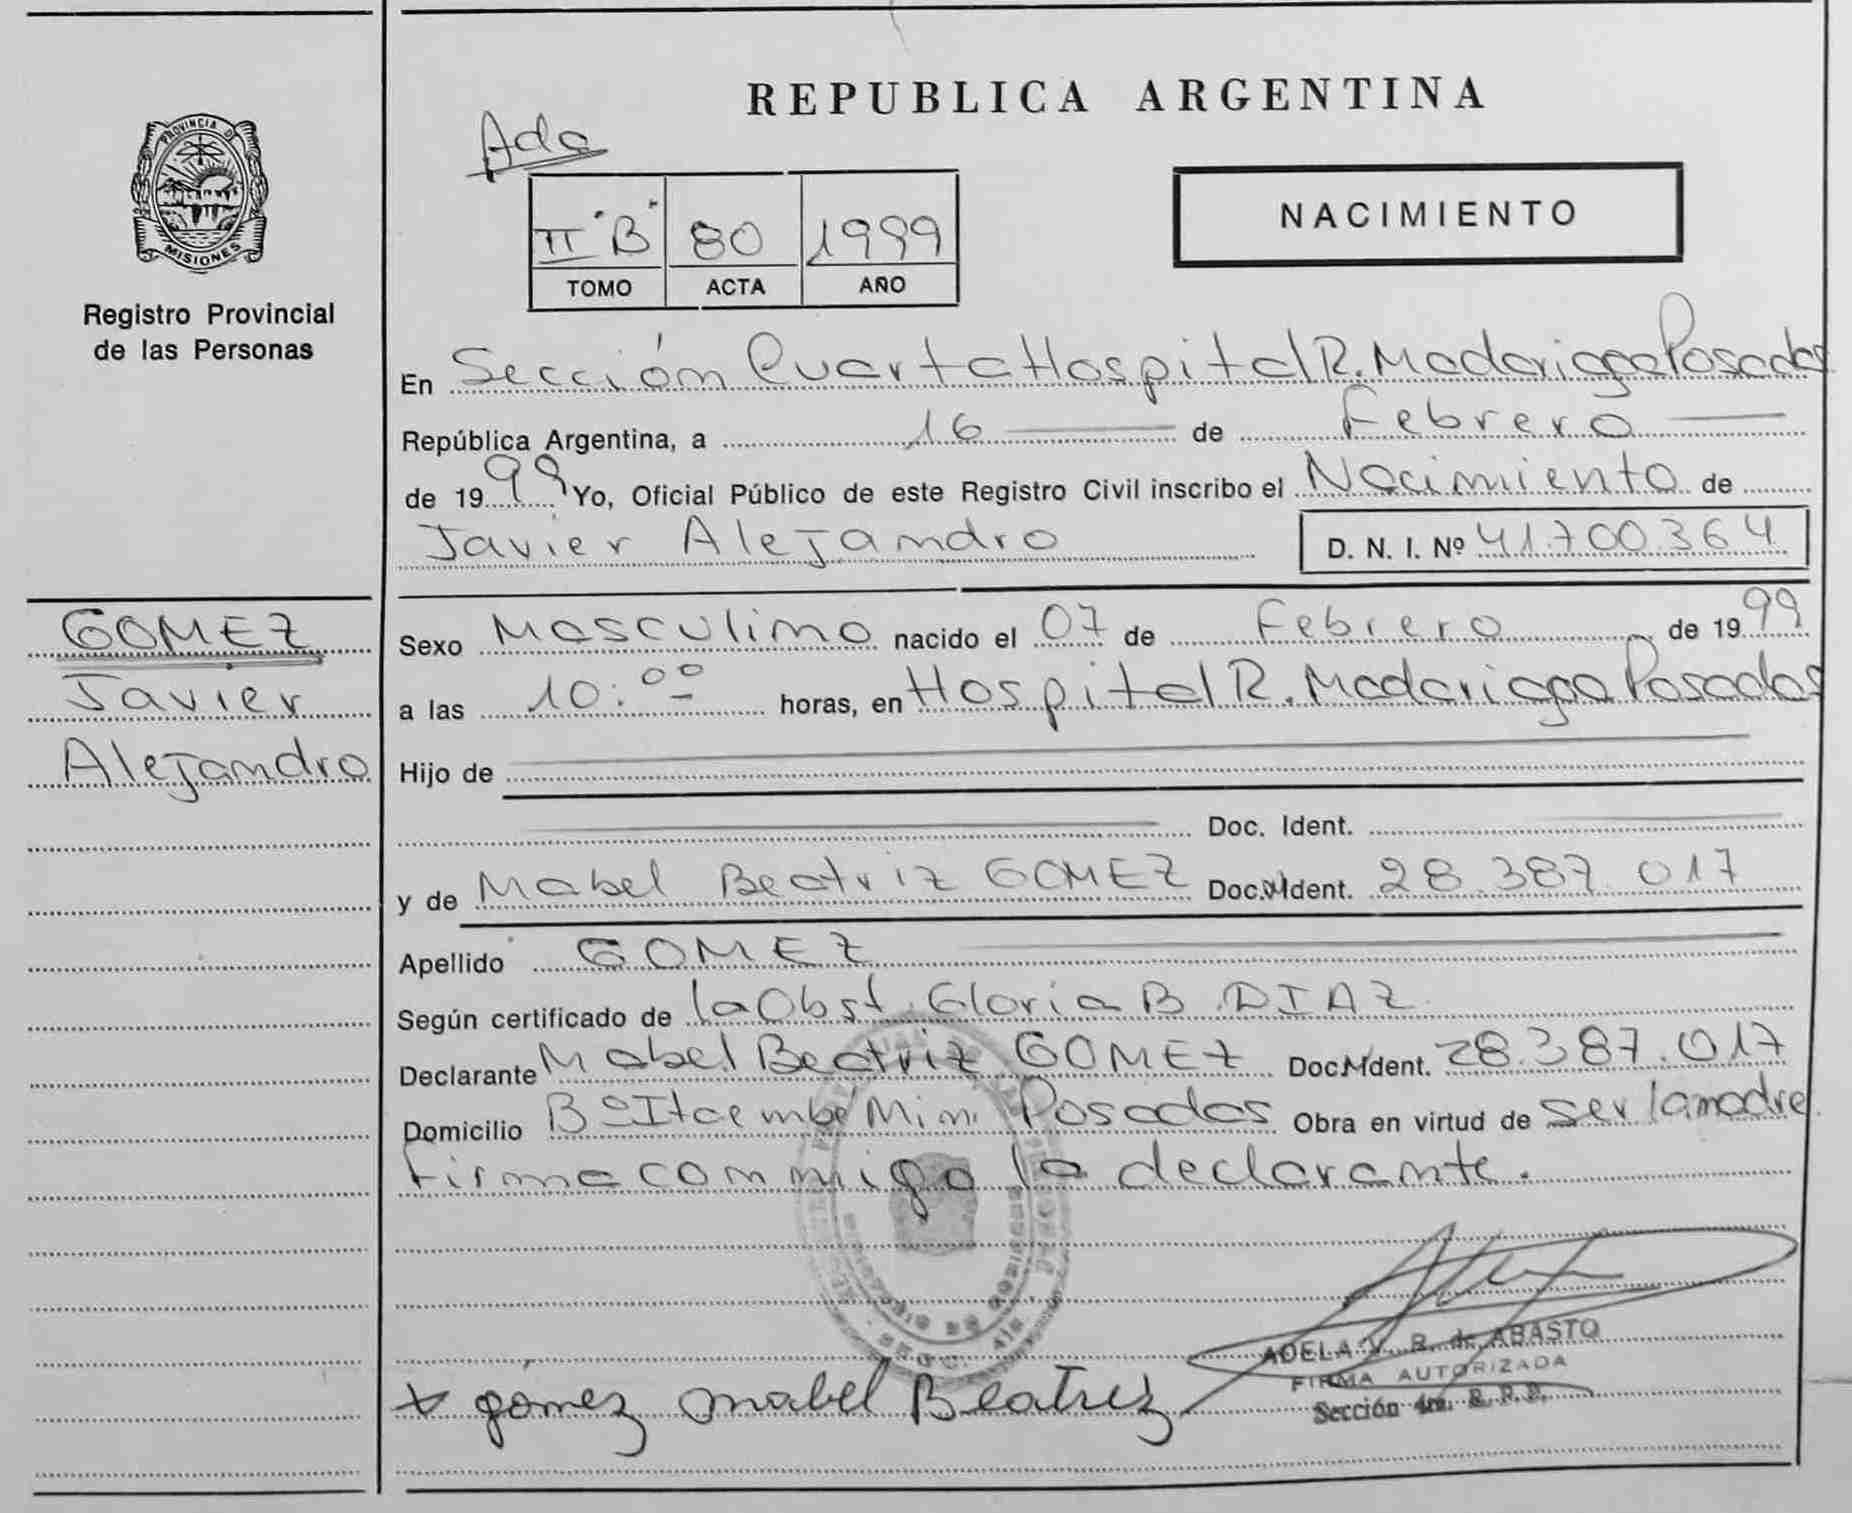 REPUBLICA ARGENTINA
PROVINCIA D
MISIONES
Registro Provincial
de las Personas
Ada
II "B" 80 1999
TOMO ACTA AÑO
NACIMIENTO
En Sección Cuarta Hospital R. Madariaga Posadas
República Argentina, a 16 de Febrero
de 1999 Yo, Oficial Público de este Registro Civil inscribo el Nacimiento de
Javier Alejandro D. N. I. Nº 41.700.364
GOMEZ
Javier
Alejandro
Sexo Masculino nacido el 07 de Febrero de 1999
a las 10:00 horas, en Hospital R. Madariaga Posadas
Hijo de
Doc. Ident.
y de Mabel Beatriz GOMEZ Doc. Ident. 28.387.017
Apellido GOMEZ
Según certificado de la Obst. Gloria B. DIAZ
Declarante Mabel Beatriz GOMEZ Doc. Ident. 28.387.017
Domicilio Bº Itaembé Miní Posadas Obra en virtud de ser la madre
firma conmigo la declarante.
ADELA V. R. de ABASTO
FIRMA AUTORIZADA
Sección 4ta. R. P. P.
x gómez mabel Beatriz